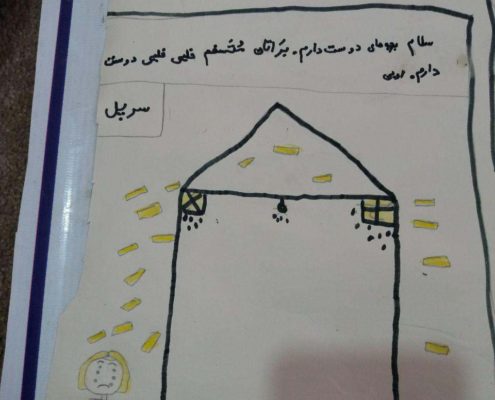 سلام بچه‌های دوست دارم. براتان متسفم قلبی قلبی دوستت
دارم.
سریل